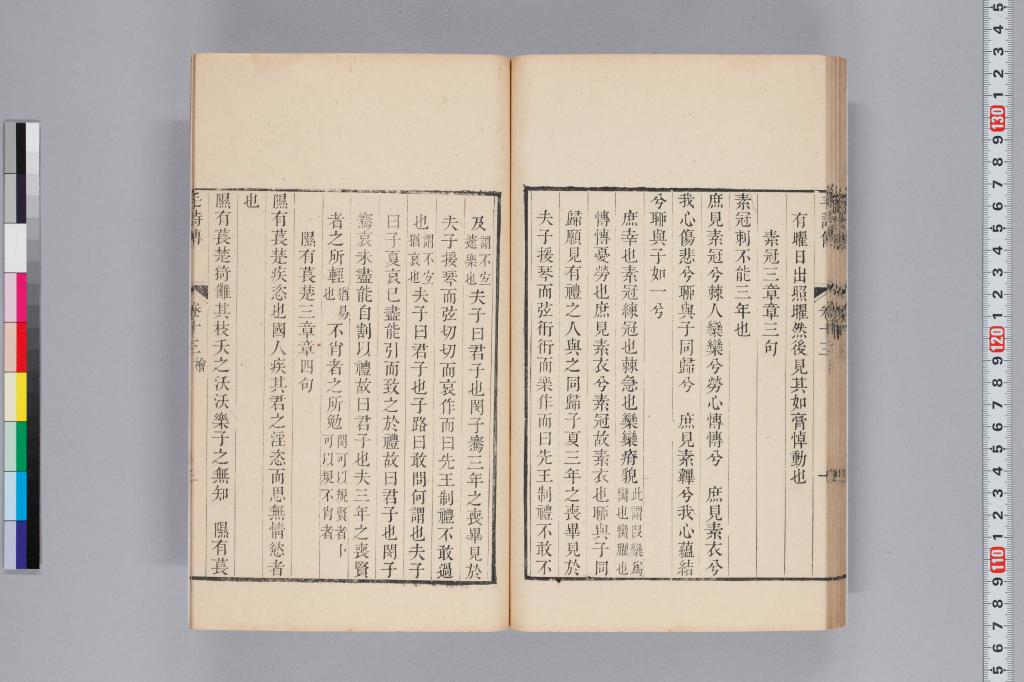 有曜日出照曜然後見其如膏悼動也
素冠三章章三句
素冠刺不能三年也
庶見素冠兮棘人欒欒兮勞心慱慱兮　庶見素衣兮
我心傷悲兮聊與子同歸兮　庶見素韠兮我心蘊結
兮聊與子如一兮
庶幸也素冠練冠也棘急也欒欒瘠貌此謂叚欒爲
臠也臠臞也
慱慱憂勞也庶見素衣兮素冠故素衣也聊與子同
歸願見有禮之人與之同歸子夏三年之喪畢見於
夫子援琴而弦衎衎而樂作而曰先王制禮不敢不
及謂不㝎
遽樂也夫子曰君子也閔子騫三年之喪畢見於
夫子援琴而弦切切而哀作而曰先王制禮不敢過
也謂不㝎
猶哀也夫子曰君子也子路曰敢問何謂也夫子
曰子夏哀已盡能引而致之於禮故曰君子也閔子
騫哀未盡能自割以禮故曰君子也夫三年之喪賢
者之所輕猶易
也不肖者之所勉閔可以規賢者卜
可以規不肖者
隰有萇楚三章章四句
隰有萇楚疾恣也國人疾其君之淫恣而思無情慾者
也
隰有萇楚猗儺其枝夭之沃沃樂子之無知　隰有萇
毛詩傳
卷十三
檜